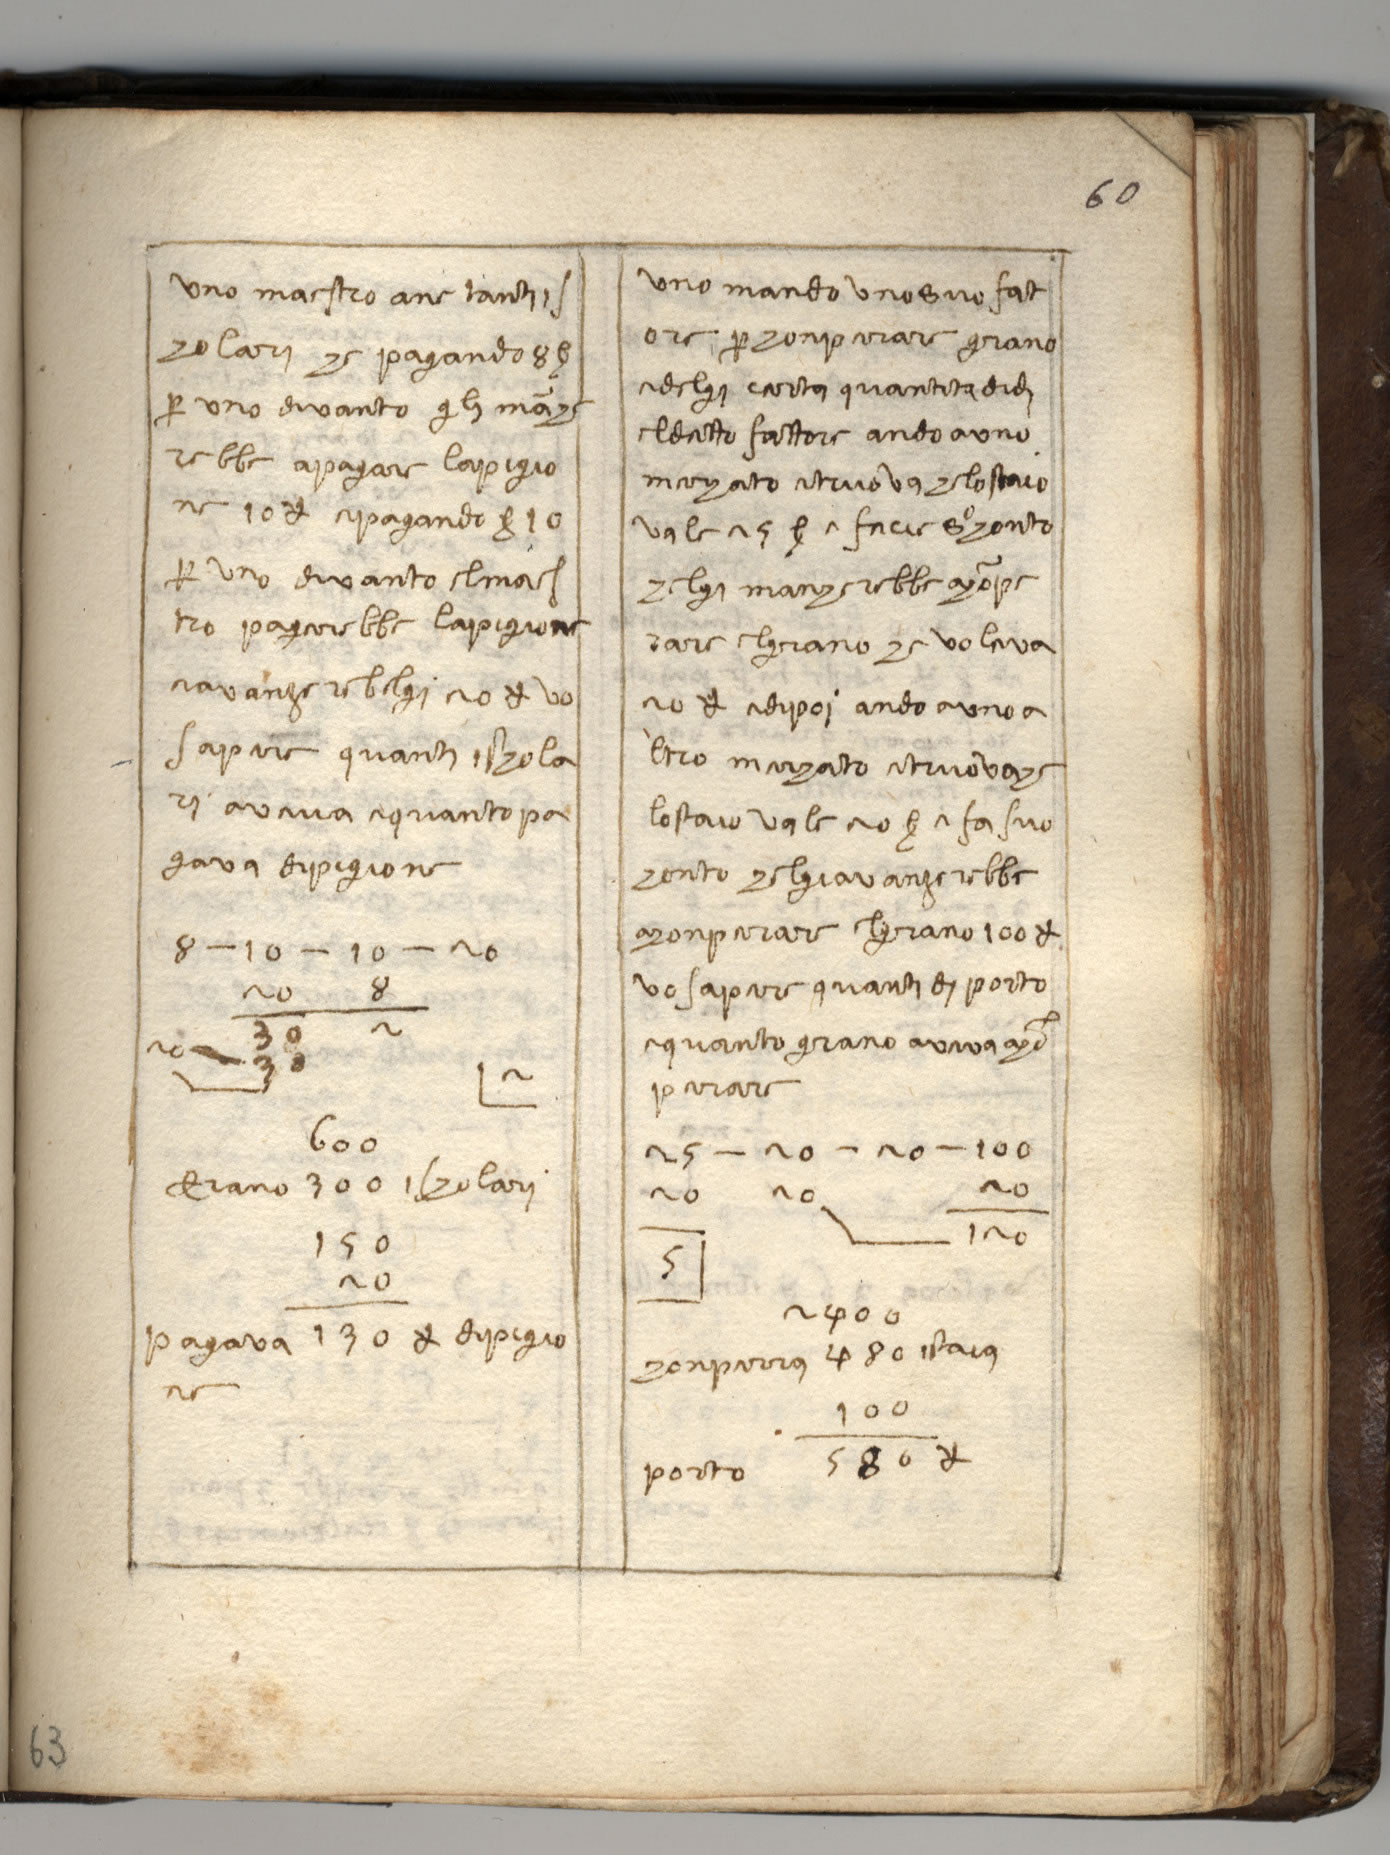 60
uno maestro ane tanti is
colari ce pagando 8 ꝭ
ꝑ uno divanto gli mãce
rebbe apagare lapigio
ne 10 ₰ epagando ꝭ 10
ꝑ uno divanto elmaes
tro pagerebbe lapigione
eavanzerebelgi 20 ₰ vo
sapere quanti iscola
ri aveva equantopa
gava dipigione
8 — 10 — 10 — 20
20 8
30 2
20 30
2
600
Erano 300 iscolari
150
20
pagava 130 ₰ dipigio
ne
uno mando uno suo fat
ore ꝑ conperare grano
edelgi certa quantita di dị
eldetto fattore ando auno
mercato etruova celostaio
vale 25 ꝭ e facie sº conto
celgi mancerebbe acõpe
rare elgrano ce voleva
20 ₰ edipoi ando auno a
ltro mercato etruovace
lostaio vale 20 ꝭ e fa suo
conto celgiavanzerebbe
aconperare elgrano 100 ₰
vo sapere quanti dị porto
equanto grano aveva acõ
perare
25 — 20 — 20 — 100
20 20 20
120
5
2400
conperera 480 istaia
100
porto 580 ₰
63